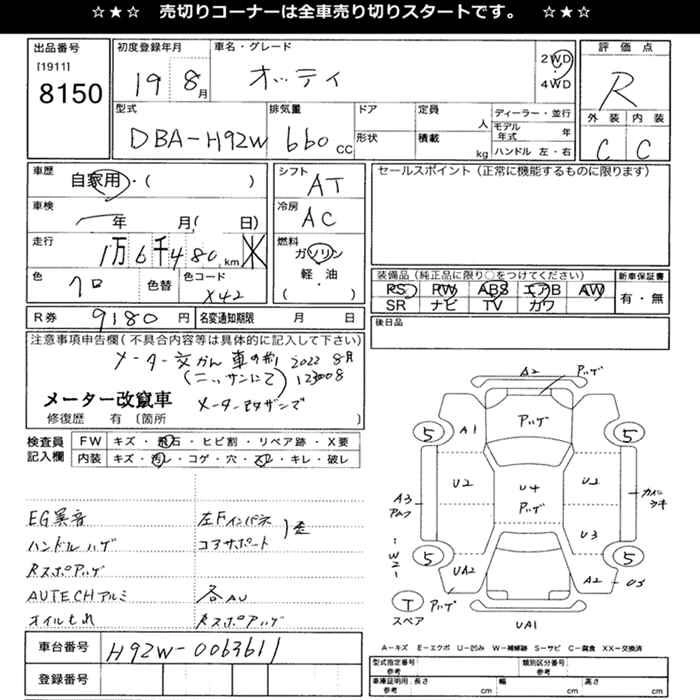 ☆★☆ 売切りコーナーは全車売り切りスタートです。 ☆★☆
出品番号
[1911]
8150
初度登録年月
19 8月
車名・グレード
オッティ
2WD
・
4WD
評価点
R
外装 内装
C C
型式
DBA-H92W
排気量
660 cc
ドア
形状
定員
人
積載
kg
ディーラー・並行
モデル年式 年
ハンドル 左・右
車歴
自家用・( )
車検
年 月( 日)
走行
1万6千480km
色
クロ
色替
色コード
X42
シフト
AT
冷房
AC
燃料
ガソリン
軽・油
( )
セールスポイント(正常に機能するものに限ります)
装備品(純正品に限り○をつけてください)
PS PW ABS エアB AW
SR ナビ TV カワ
新車保証書
有・無
後日品
R券 9180円
名変通知期限 月 日
注意事項申告欄(不具合内容等は具体的に記入して下さい)
メーター交かん車の為 2022 8月
(ニッサンにて) 123008
メーター改竄車
メーター改ザン
修復歴 有(箇所 )
検査員記入欄
FW キズ・飛石・ヒビ割・リペア跡・X要
内装 キズ・汚レ・コゲ・穴・スレ・キレ・破レ
EG異音
ハンドルハゲ
Rスポアハゲ
AUTECHアルミ
オイルもれ
左Fインパネ
コアサポート
1歪
各AU
Rスポアハゲ
A2 ハゲ
5 A1 ハゲ 5
U2 U4 ハゲ U1
A3
U3
W2
5 UA2 A2 U3 5
T ハゲ
スペア
UA1
A-キズ E-エクボ U-凹み W-補修跡 S-サビ C-腐食 XX-交換済
車台番号
H92W-0063611
登録番号
型式指定番号 参考
類別区分番号 参考
車庫証明用 参考
長さ cm
幅 cm
高さ cm